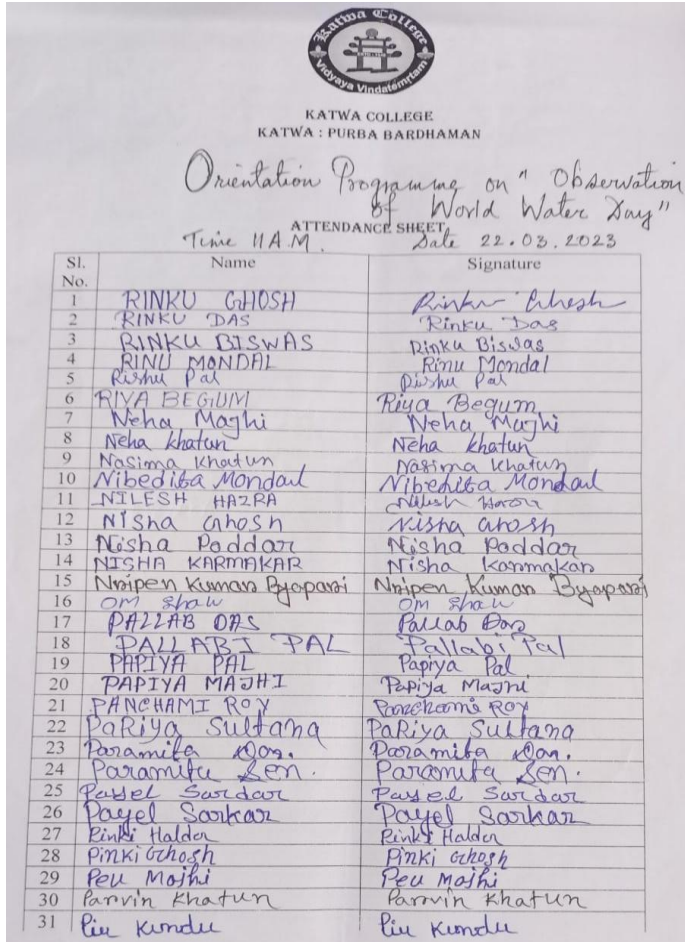 Katwa College
Vidyaya Vindatemrtam
KATWA COLLEGE
KATWA : PURBA BARDHAMAN
Orientation Programme on " Observation
of World Water Day"
ATTENDANCE SHEET
Time 11 A.M. Date 22.03.2023
Sl. No. Name Signature
1 RINKU GHOSH Rinku Ghosh
2 RINKU DAS Rinku Das
3 RINKU BISWAS Rinku Biswas
4 RINU MONDAL Rinu Mondal
5 Rishu Pal Rishu Pal
6 RIYA BEGUM Riya Begum
7 Neha Majhi Neha Majhi
8 Neha Khatun Neha Khatun
9 Nasima Khatun Nasima Khatun
10 Nibedita Mondal Nibedita Mondal
11 NILESH HAZRA Nilesh
12 Nisha Ghosh Nisha Ghosh
13 Nisha Poddar Nisha Poddar
14 NISHA KARMAKAR Nisha Karmakar
15 Nripen Kumar Byapari Nripen Kumar Byapari
16 OM Shaw OM Shaw
17 PALLAB DAS Pallab Das
18 PALLABI PAL Pallabi Pal
19 PAPIYA PAL Papiya Pal
20 PAPIYA MAJHI Papiya Majhi
21 PANCHAMI ROY Panchami Roy
22 PaRiya Sultana PaRiya Sultana
23 Paramita Dan. Paramita Dan.
24 Paramita Sen. Paramita Sen.
25 Payel Sardar Payel Sardar
26 Payel Sarkar Payel Sarkar
27 Halder Halder
28 Pinki Ghosh Pinki Ghosh
29 Peu Majhi Peu Majhi
30 Parvin Khatun Parvin Khatun
31 Piu Kundu Piu Kundu